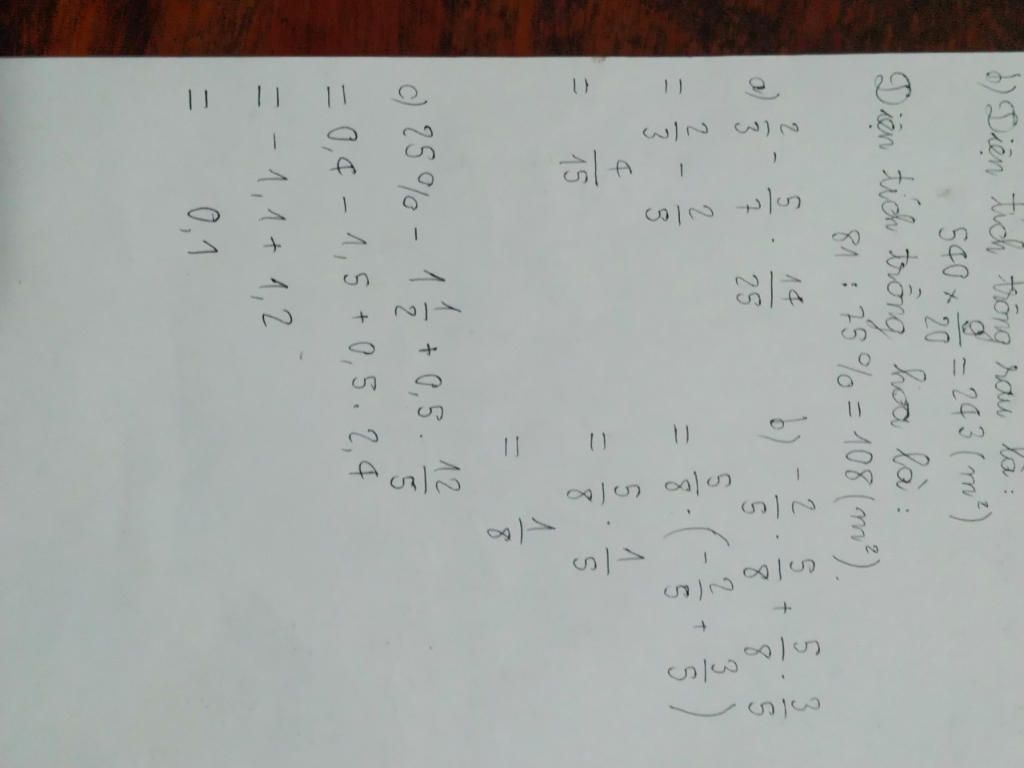 b) Diện tích trồng rau là:
540 × 9/20 = 243 (m²)
Diện tích trồng hoa là:
81 : 75% = 108 (m²).
a) 2/3 - 5/7 . 14/25
= 2/3 - 2/5
= 4/15
b) -2/5 . 5/8 + 5/8 . 3/5
= 5/8 . (-2/5 + 3/5)
= 5/8 . 1/5
= 1/8
c) 25% - 1 1/2 + 0,5 . 12/5
= 0,4 - 1,5 + 0,5 . 2,4
= -1,1 + 1,2
= 0,1